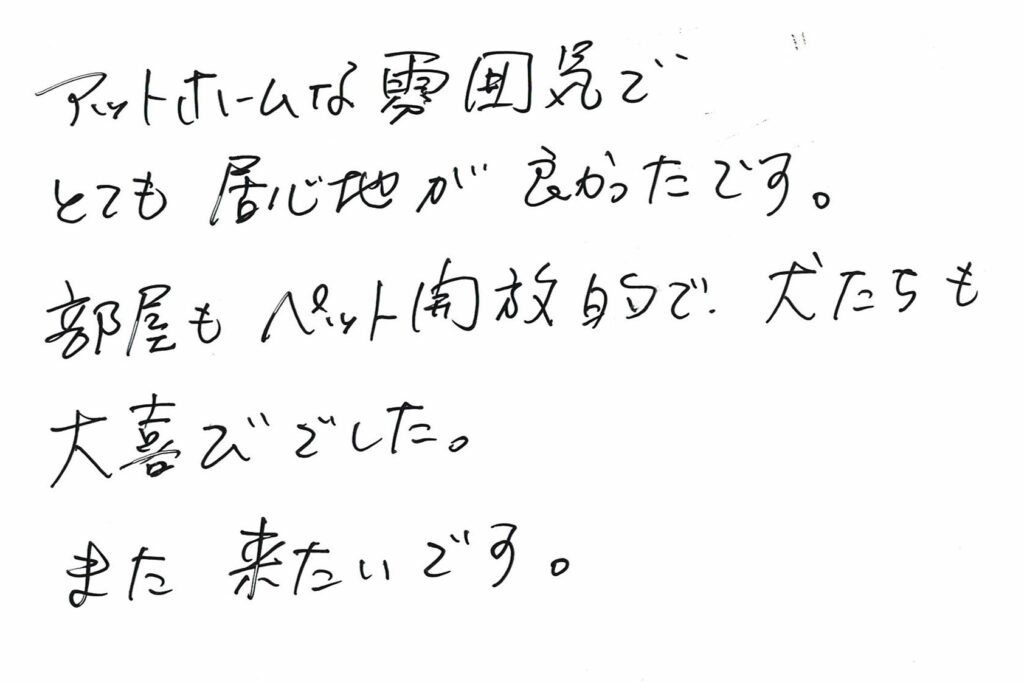 アットホームな雰囲気で
とても居心地が良かったです。
部屋もペット開放的で、犬たちも
大喜びでした。
また来たいです。